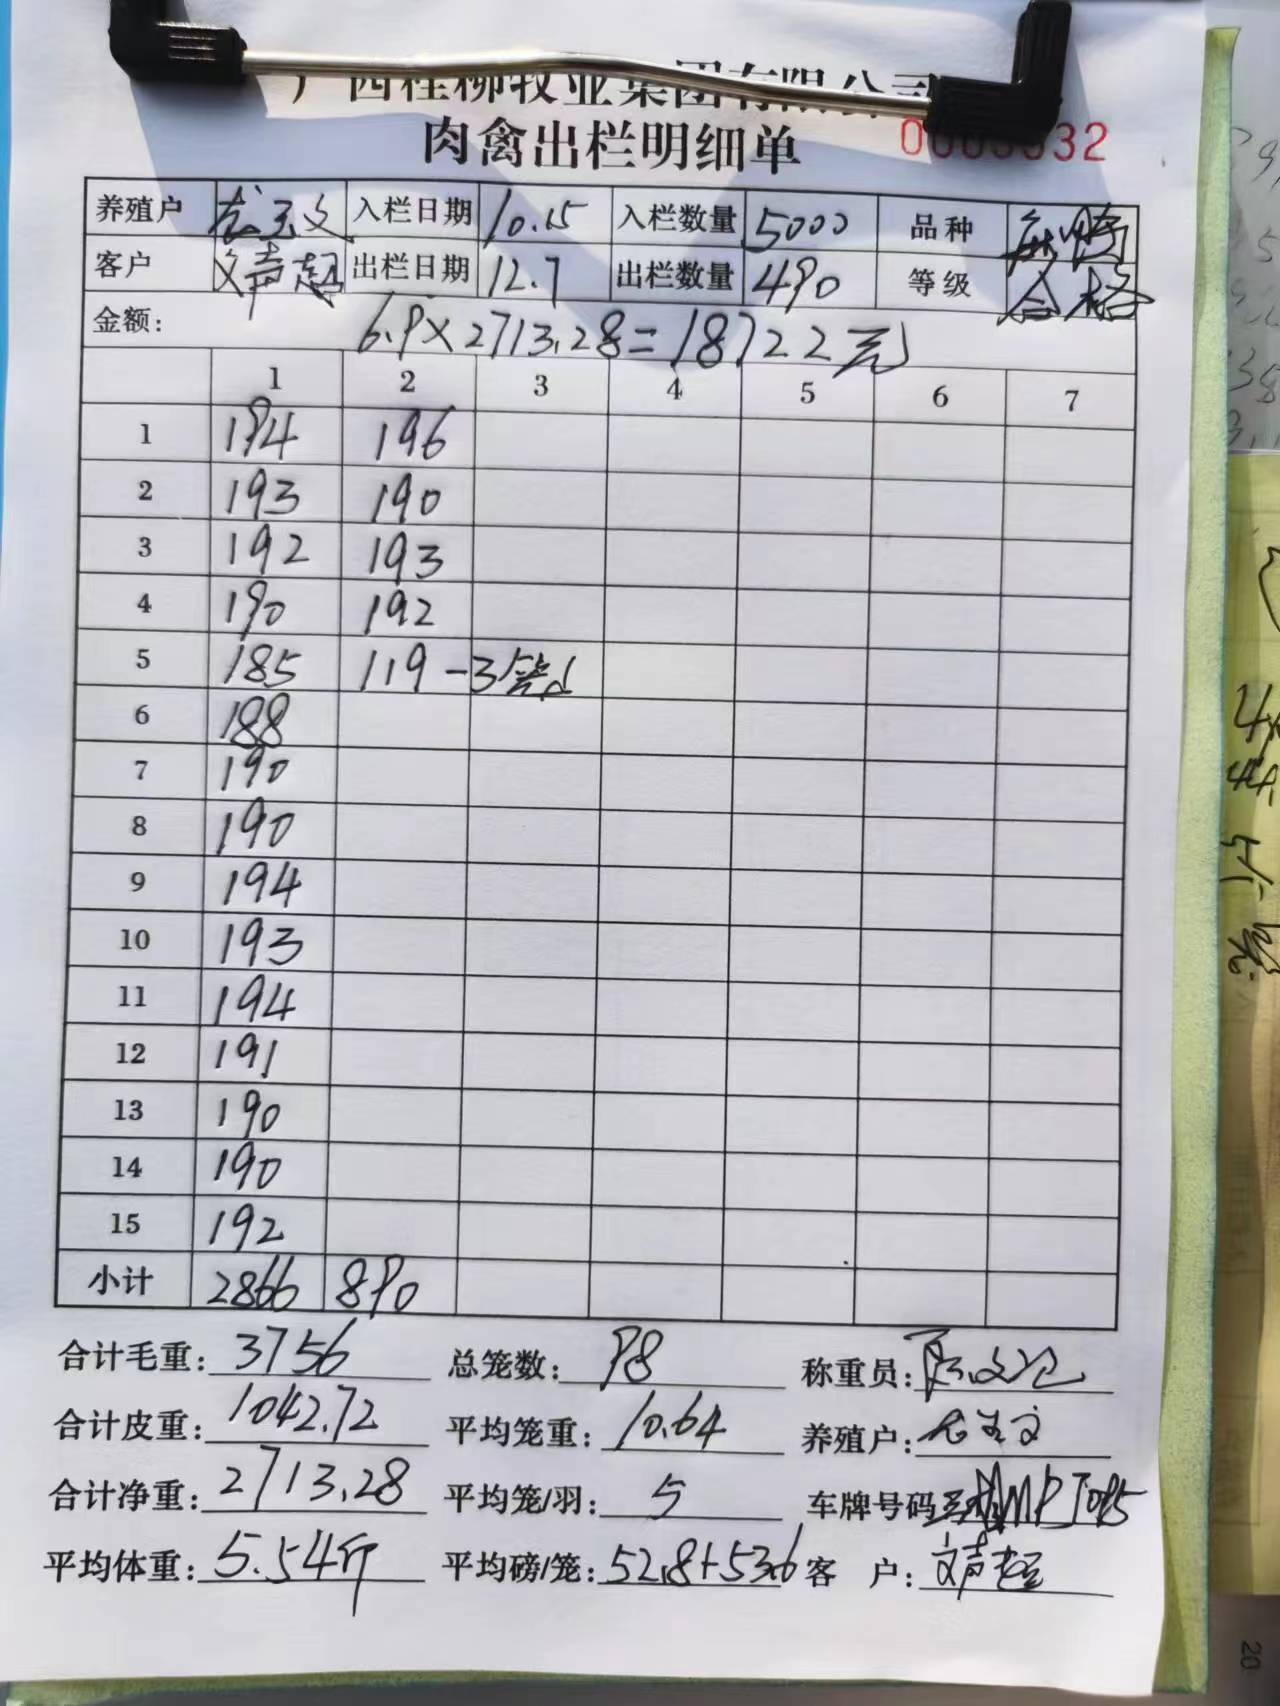 广西桂柳牧业集团有限公司
肉禽出栏明细单
养殖户 入栏日期 10.15 入栏数量 5000 品种
客户 文声超 出栏日期 12.7 出栏数量 490 等级 合格
金额: 6.9×2713.28=18722元
1 2 3 4 5 6 7
1 194 196
2 193 190
3 192 193
4 190 192
5 185 119 -3笼
6 188
7 190
8 190
9 194
10 193
11 194
12 191
13 190
14 190
15 192
小计 2866 890
合计毛重: 3756 总笼数: 98 称重员:
合计皮重: 1042.72 平均笼重: 10.64 养殖户:
合计净重: 2713.28 平均笼/羽: 5 车牌号码
平均体重: 5.54斤 平均磅/笼: 52.8+53.6 客 户: 文声超